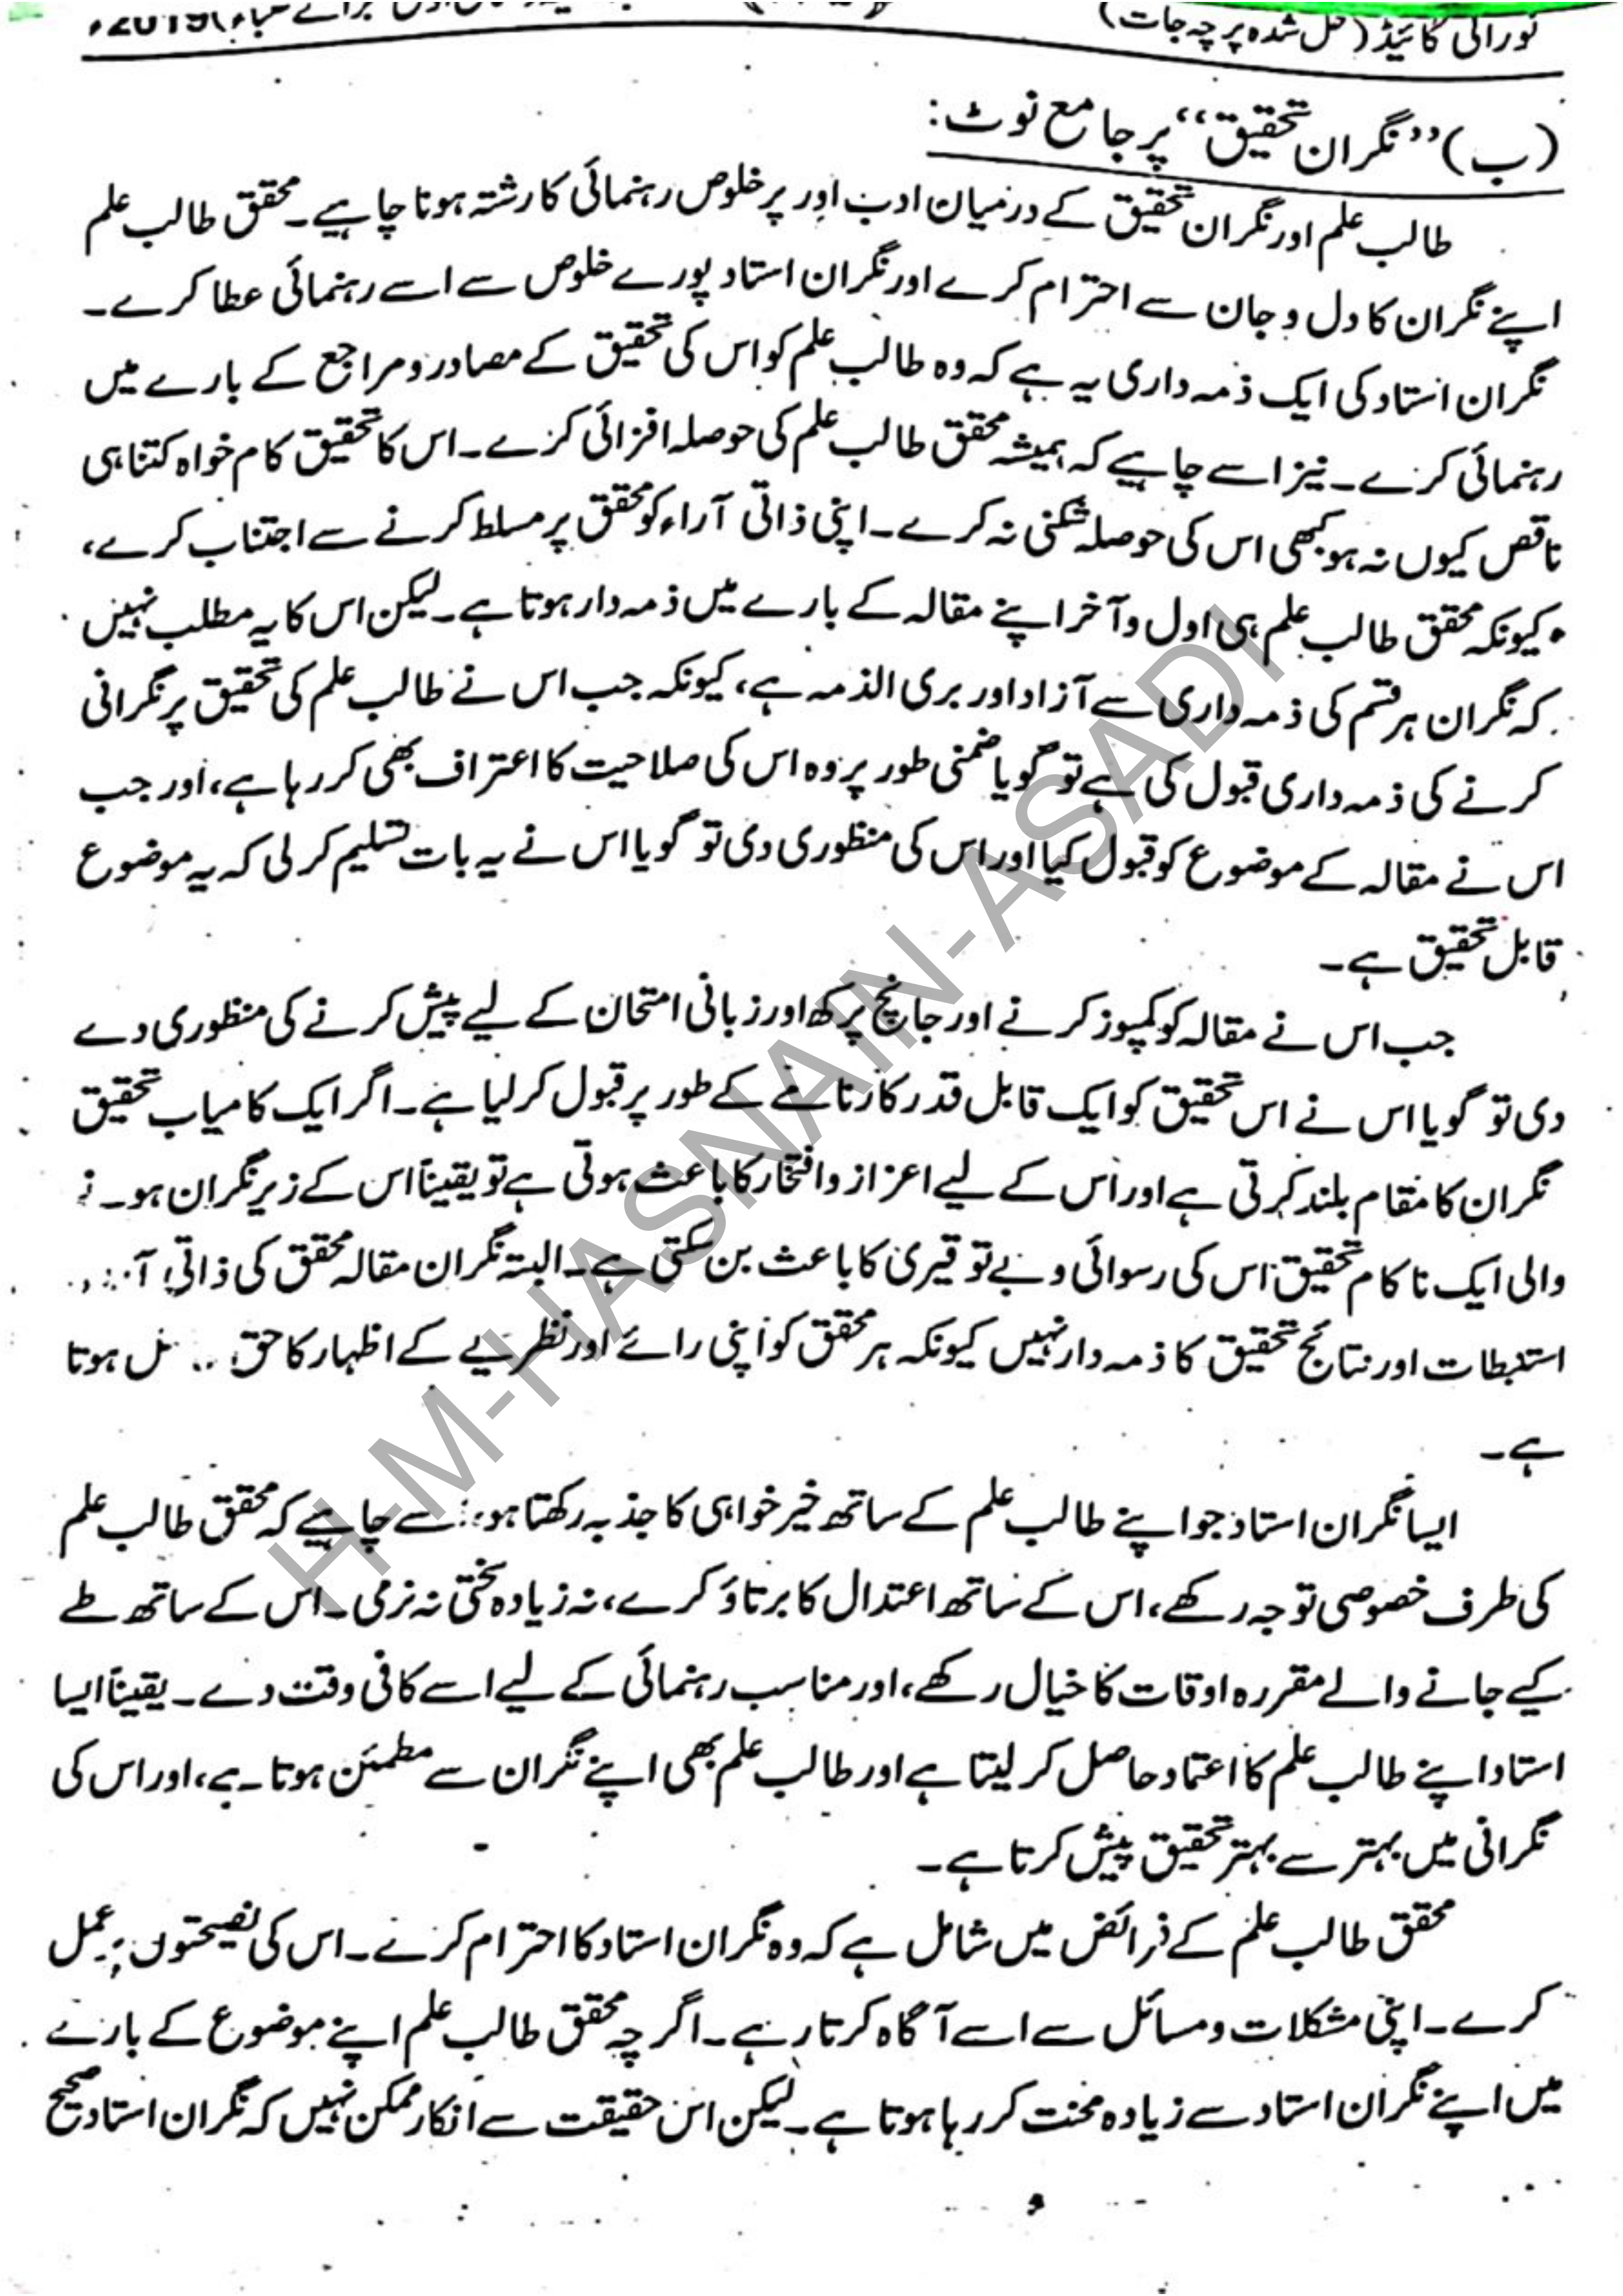 نورانی گائیڈ (حل شدہ پرچہ جات)
(ب) ”نگران تحقیق“ پر جامع نوٹ:
طالب علم اور نگران تحقیق کے درمیان ادب اور پرخلوص رہنمائی کا رشتہ ہونا چاہیے۔ محقق طالب علم
اپنے نگران کا دل و جان سے احترام کرے اور نگران استاد پورے خلوص سے اسے رہنمائی عطا کرے۔
نگران استاد کی ایک ذمہ داری یہ ہے کہ وہ طالب علم کو اس کی تحقیق کے مصادر و مراجع کے بارے میں
رہنمائی کرے۔ نیز اسے چاہیے کہ ہمیشہ محقق طالب علم کی حوصلہ افزائی کرے۔ اس کا تحقیق کام خواہ کتنا ہی
ناقص کیوں نہ ہو کبھی اس کی حوصلہ شکنی نہ کرے۔ اپنی ذاتی آراء کو محقق پر مسلط کرنے سے اجتناب کرے،
کیونکہ محقق طالب علم ہی اول و آخر اپنے مقالہ کے بارے میں ذمہ دار ہوتا ہے۔ لیکن اس کا یہ مطلب نہیں
کہ نگران ہر قسم کی ذمہ داری سے آزاد اور بری الذمہ ہے، کیونکہ جب اس نے طالب علم کی تحقیق پر نگرانی
کرنے کی ذمہ داری قبول کی ہے تو گویا ضمنی طور پر وہ اس کی صلاحیت کا اعتراف بھی کر رہا ہے، اور جب
اس نے مقالہ کے موضوع کو قبول کیا اور اس کی منظوری دی تو گویا اس نے یہ بات تسلیم کر لی کہ یہ موضوع
قابل تحقیق ہے۔
جب اس نے مقالہ کو کمپوز کرنے اور جانچ پرکھ اور زبانی امتحان کے لیے پیش کرنے کی منظوری دے
دی تو گویا اس نے اس تحقیق کو ایک قابل قدر کارنامے کے طور پر قبول کر لیا ہے۔ اگر ایک کامیاب تحقیق
نگران کا مقام بلند کرتی ہے اور اس کے لیے اعزاز و افتخار کا باعث ہوتی ہے تو یقیناً اس کے زیر نگران ہو۔
والی ایک ناکام تحقیق اس کی رسوائی و بے توقیری کا باعث بن سکتی ہے۔ البتہ نگران مقالہ محقق کی ذاتی
استنبطات اور نتائج تحقیق کا ذمہ دار نہیں کیونکہ ہر محقق کو اپنی رائے اور نظریے کے اظہار کا حق ہوتا
ہے۔
ایسا نگران استاد جو اپنے طالب علم کے ساتھ خیر خواہی کا جذبہ رکھتا ہو، سے چاہیے کہ محقق طالب علم
کی طرف خصوصی توجہ رکھے، اس کے ساتھ اعتدال کا برتاؤ کرے، نہ زیادہ سختی نہ نرمی۔ اس کے ساتھ طے
کیے جانے والے مقررہ اوقات کا خیال رکھے، اور مناسب رہنمائی کے لیے اسے کافی وقت دے۔ یقیناً ایسا
استاد اپنے طالب علم کا اعتماد حاصل کر لیتا ہے اور طالب علم بھی اپنے نگران سے مطمئن ہوتا ہے، اور اس کی
نگرانی میں بہتر سے بہتر تحقیق پیش کرتا ہے۔
محقق طالب علم کے فرائض میں شامل ہے کہ وہ نگران استاد کا احترام کرے۔ اس کی نصیحتوں پر عمل
کرے۔ اپنی مشکلات و مسائل سے اسے آگاہ کرتا رہے۔ اگرچہ محقق طالب علم اپنے موضوع کے بارے
میں اپنے نگران استاد سے زیادہ محنت کر رہا ہوتا ہے۔ لیکن اس حقیقت سے انکار ممکن نہیں کہ نگران استاد صحیح
H-M-HASNAIN-ASADI